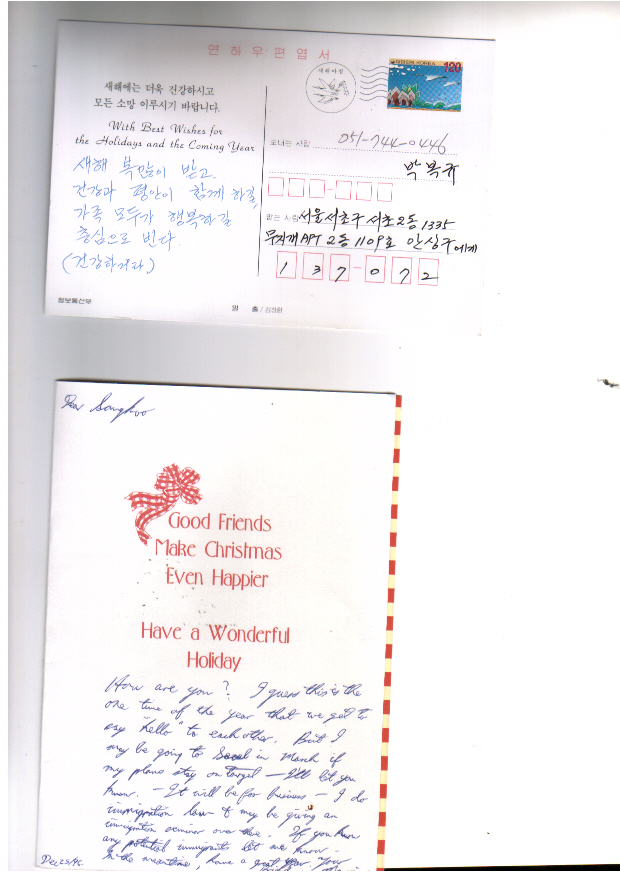 연하우편엽서
새해아침
대한민국 KOREA 120
새해에는 더욱 건강하시고
모든 소망 이루시기 바랍니다.
With Best Wishes for
the Holidays and the Coming Year
새해 복많이 받고
건강과 평안이 함께 하길,
가족 모두가 행복하길
충심으로 빈다.
(건강하거라)
정보통신부
보내는 사람 051-744-0446
박복규
받는 사람 서울서초구 서초2동 1335
무지개 APT 2동 1109호 안싱구에게
137-072
Dear
Good Friends
Make Christmas
Even Happier
Have a Wonderful
Holiday
How are you? I guess this is the
one time of the year that we get to
say "hello" to each other. But I
may be going to Seoul in March if
my plans stay on target — I'll let you
know. - It will be for business - I do
immigration law & may be giving an
immigration seminar over there. If you know
any potential immigrants let me know.
In the meantime, have a great year. Your